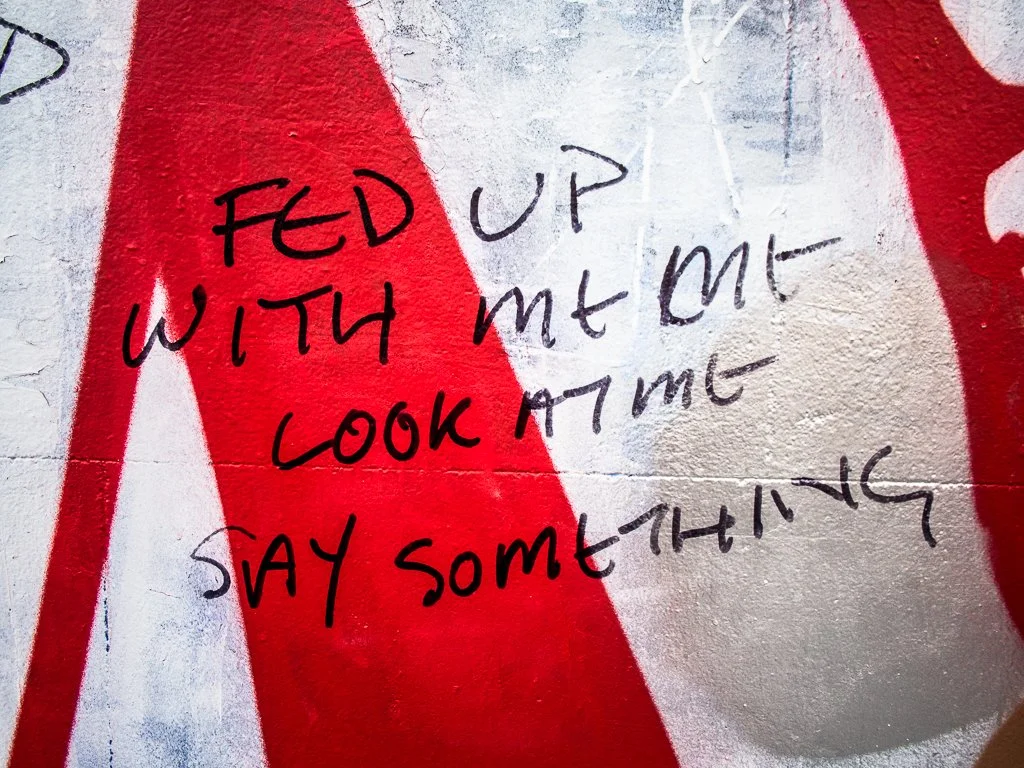 D
FED UP
WITH ME ME
LOOK AT ME
SAY SOMETHING